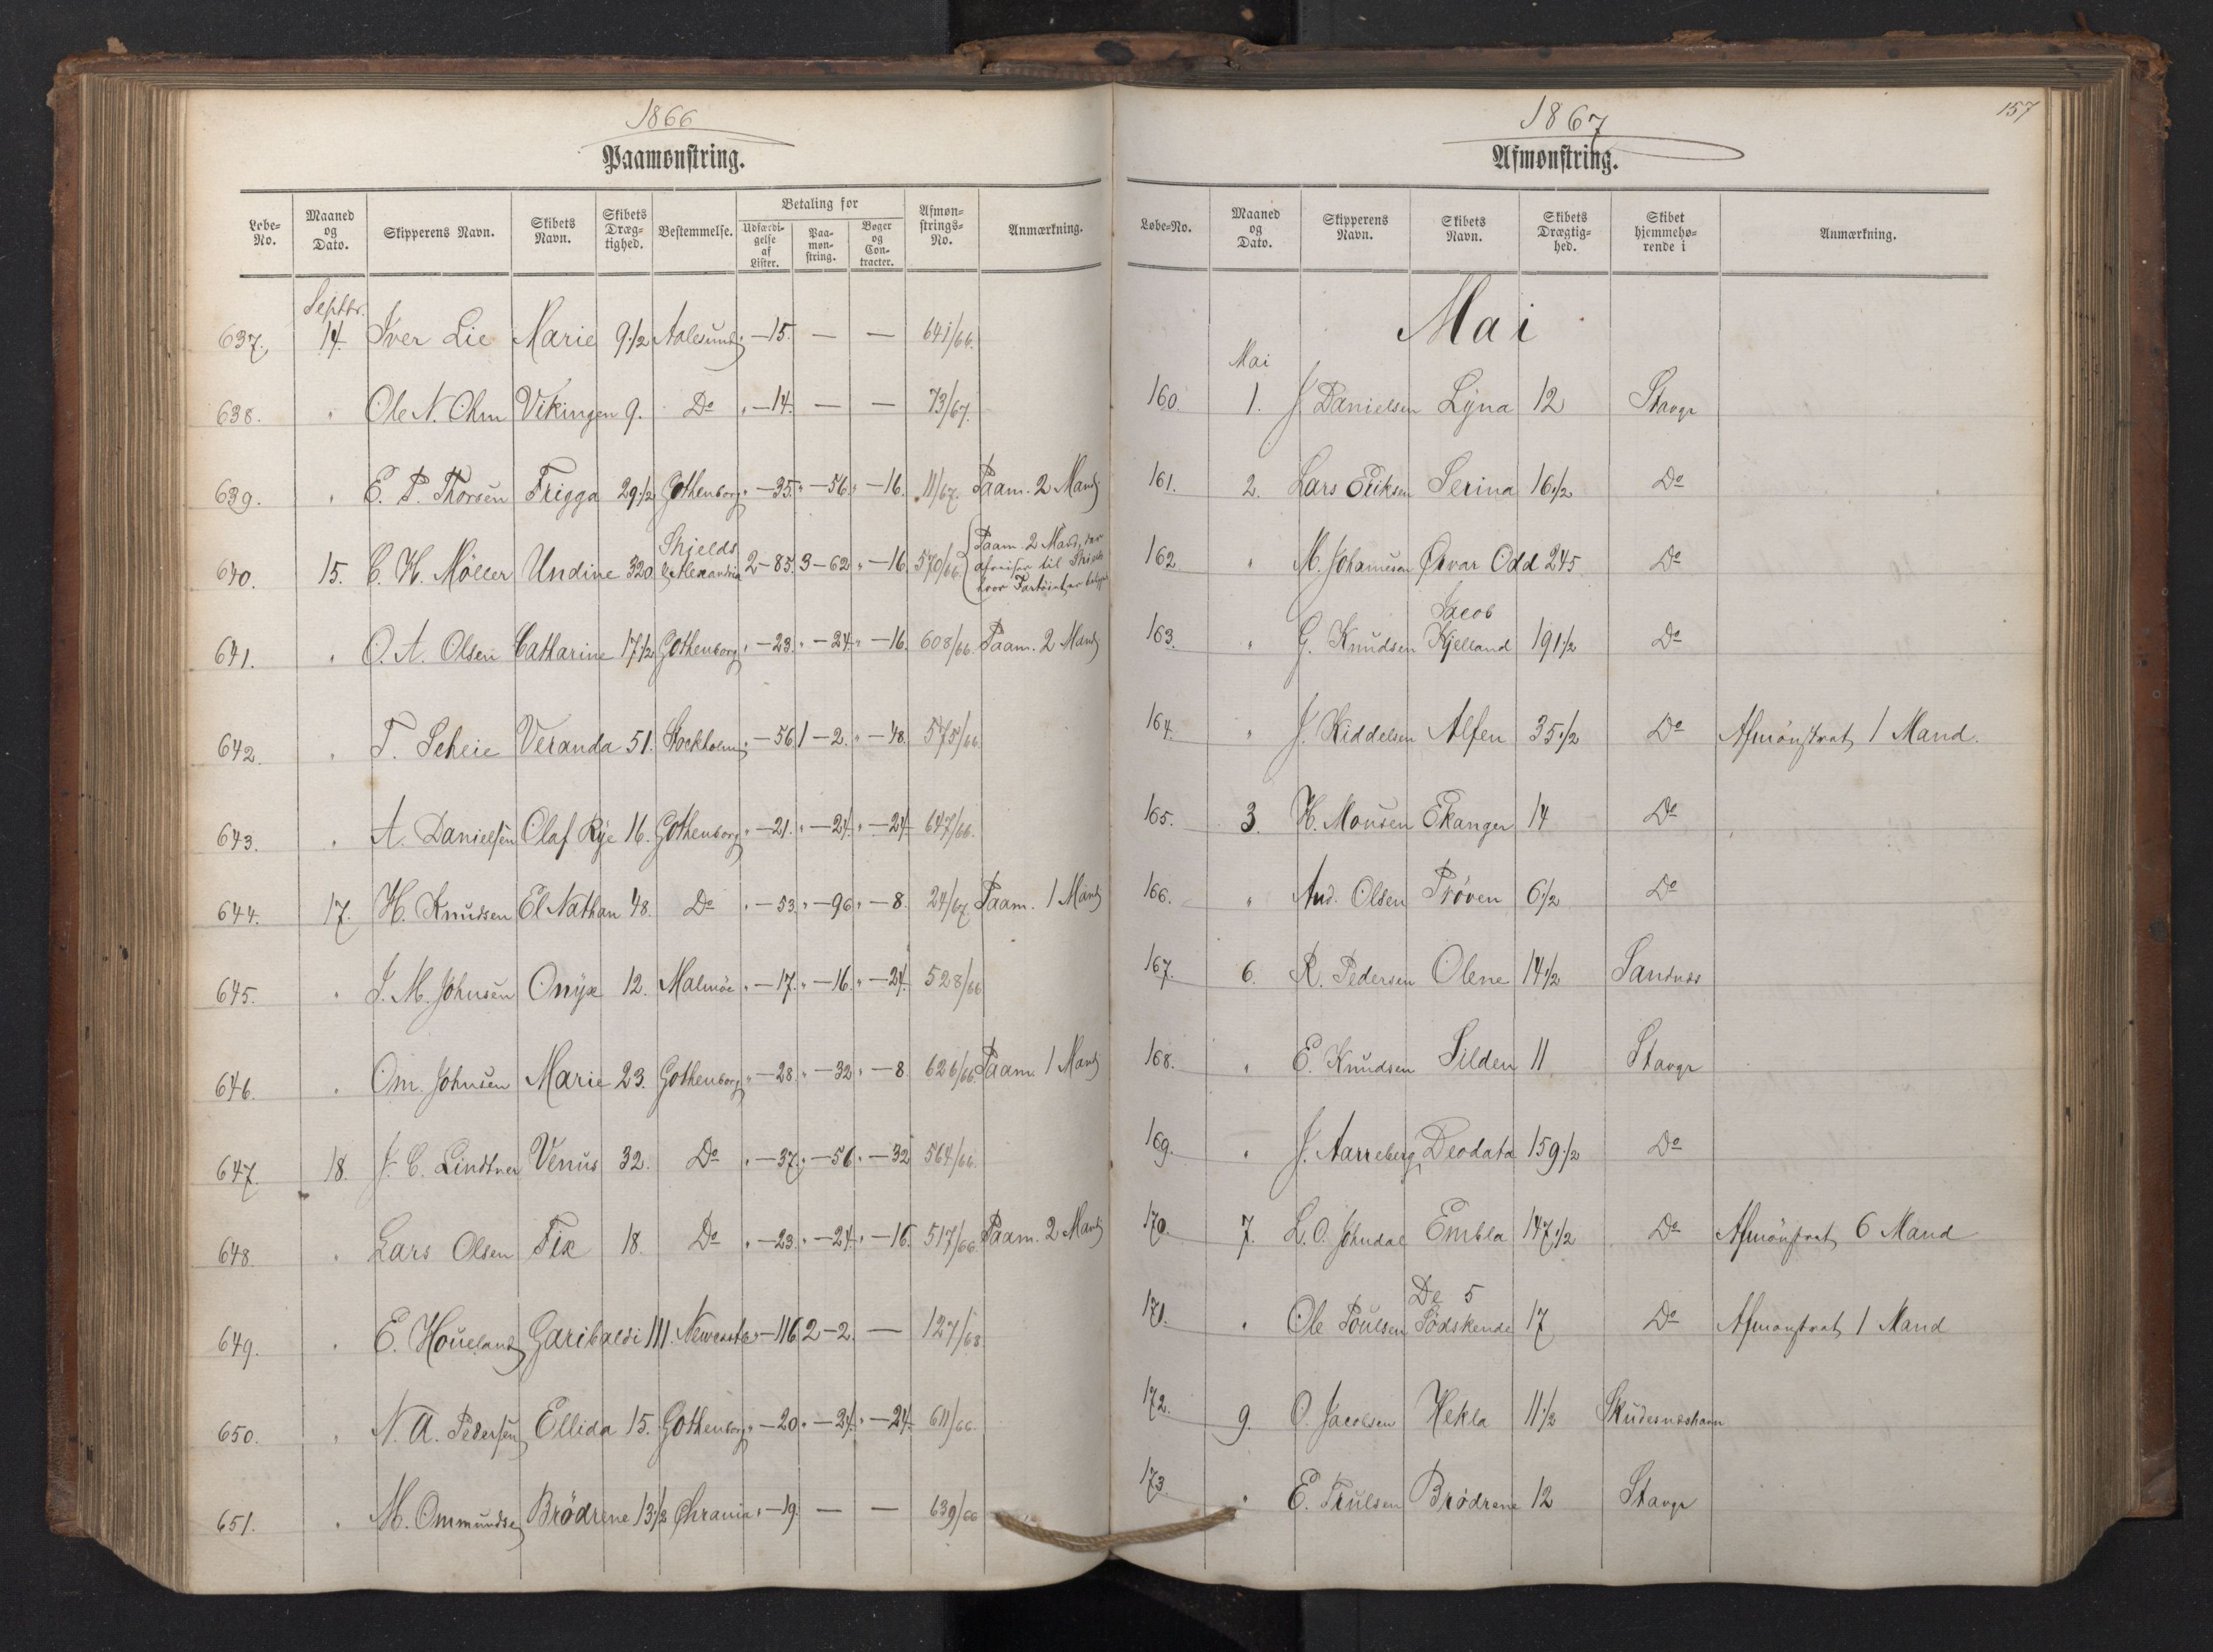 1866
Paamønstring.
Løbe-No. | Maaned og Dato. | Skipperens Navn. | Skibets Navn. | Skibets Drægtighed. | Bestemmelse. | Betaling for | Udfærdigelse af Lister. | Paamønstring. | Bøger og Contracter. | Afmønstrings-No. | Anmærkning.
Septbr.
637. 14. Iver Lie Marie 9 1/2 Aalesund " -15. — — 641/66.
638. " Ole N. Ohm Vikingen 9. Do " -14. — — 73/67.
639. " E. P. Thorsen Frigga 29 1/2 Gothenborg " -35. " -56. " -16. 11/67. Paam. 2 Mand
640. 15. C. H. Möller Undine 320 Shjelds & Alexandria 2-85. 3-62 " -16. 570/66. Paam. 2 Mand, der afreiser til Shields hvor Fartöiet er
641. " O. A. Olsen Catharine 17 1/2 Gothenborg " -23. " -24. " -16. 608/66. Paam. 2 Mand
642. " T. Scheie Veranda 51. Stockholm " -56. 1-2. " -48. 575/66.
643. " A. Danielsen Olaf Rÿe 16. Gothenborg " -21. " -24. " -24. 647/66.
644. 17. H. Knudsen El Nathan 48. Do " -53. " -96. " -8. 24/67. Paam. 1 Mand
645. " J. M. Johnsen Onÿx 12. Malmöe " -17. " -16. " -24. 528/66
646. " Om. Johnsen Marie 23. Gothenborg " -28. " -32. " -8. 626/66. Paam. 1 Mand
647. 18. J. C. Lindtner Venus 32. Do " -37. " -56. " -32 564/66.
648. " Lars Olsen Fix 18. Do " -23. " -24. " -16. 517/66. Paam. 2 Mand
649. " E. Houeland Garibaldi 111. Newcastle " -116 2-2. — 127/68.
650. " N. A. Pedersen Ellida 15. Gothenborg " -20. " -24. " -24. 611/66.
651. " M. Ommundsen Brödrene 13 1/2 Chrania " -19. — — 639/66
157
1867
Afmønstring.
Løbe-No. | Maaned og Dato. | Skipperens Navn. | Skibets Navn. | Skibets Drægtighed. | Skibet hjemmehørende i | Anmærkning.
Mai
Mai
160. 1. J. Danielsen Lÿna 12 Stavgr
161. 2. Lars Eriksen Serina 16 1/2 Do
162. " M. Johannesen Ørvar Odd 245 Do
163. " G. Knudsen Jacob Kjelland 191 1/2 Do
164. " J. Kiddelsen Alfen 35 1/2 Do Afmönstrat 1 Mand.
165. 3. H. Monsen Ekanger 14 Do
166. " And. Olsen Pröven 6 1/2 Do
167. 6. R. Pedersen Olene 14 1/2 Sandnæs
168. " E. Knudsen Silden 11 Stavgr
169. " J. Aarreberg Deodata 159 1/2 Do
170. 7. L. O. Johndal Embla 147 1/2 Do Afmönstrat 6 Mand
171. " Ole Poulsen De 5 Södskende 17 Do Afmönstrat 1 Mand
172. 9. O. Jacobsen Hekla 11 1/2 Skudesnæshavn
173. " E. Trulsen Brödrene 12 Stavgr